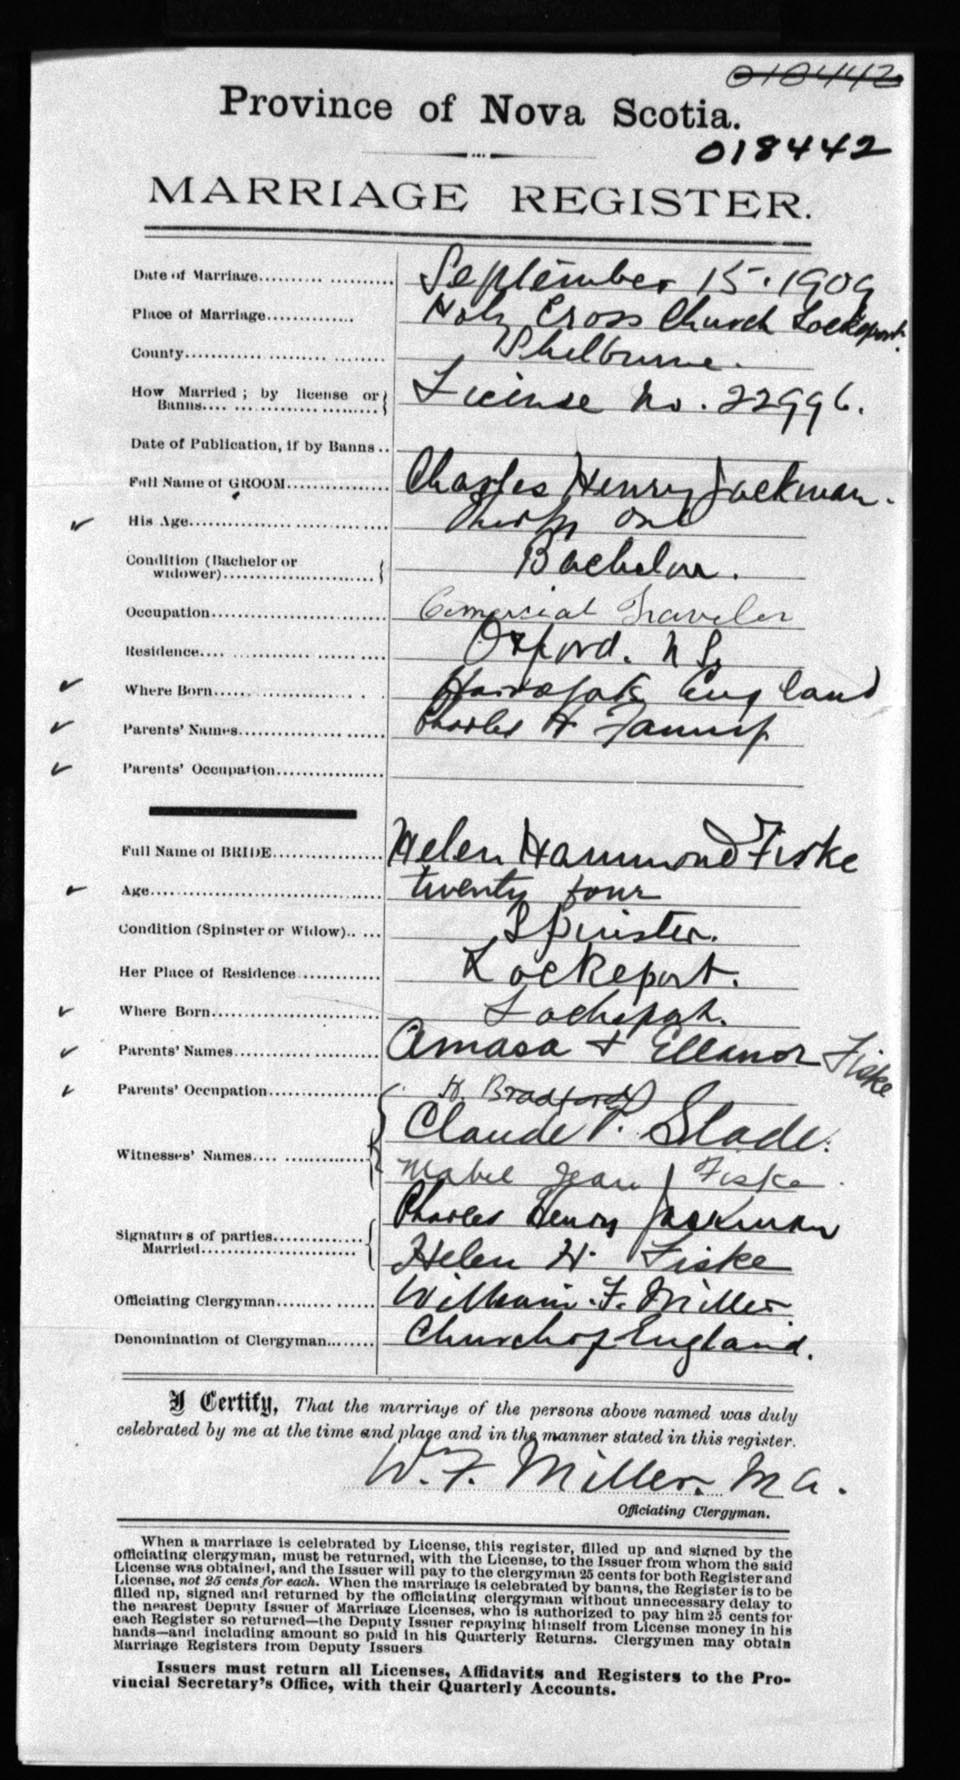 010442
Province of Nova Scotia.
018442
MARRIAGE REGISTER.
Date of Marriage.................... September 15. 1909
Place of Marriage.............. Holy Cross Church Lockeport.
County.................................. Shelburne.
How Married; by license or Banns.................. License No. 22996.
Date of Publication, if by Banns..
Full Name of GROOM................. Charles Henry Jackman.
His Age.................................. Thirty One
Condition (Bachelor or widower)........................ Bachelor.
Occupation............................. Comercial Traveler
Residence.... ........ ...... ..... Oxford. N S.
Where Born...... ........ . .... England
Parents' Names........................ Charles H
Parents' Occupation..................
Full Name of BRIDE.................. Helen Hammond Fiske
Age........................................ twenty four
Condition (Spinster or Widow).. .... Spinster.
Her Place of Residence ............. Lockeport.
Where Born............................ Lockeport.
Parents' Names........................ Amasa + Ellanor Fiske
Parents' Occupation..................
H. Bradford
Witnesses' Names.... ............... Claude P. Slade.
Mabel Jean Fiske.
Signatures of parties Married........................ Charles Henry Jackman
Helen H. Fiske
Officiating Clergyman......... ....... William. F. Miller.
Denomination of Clergyman........ Church of England.
I Certify, That the marriage of the persons above named was duly
celebrated by me at the time and place and in the manner stated in this register.
W. F. Miller. M A.
Officiating Clergyman.
When a marriage is celebrated by License, this register, filled up and signed by the
officiating clergyman, must be returned, with the License, to the Issuer from whom the said
License was obtained, and the Issuer will pay to the clergyman 25 cents for both Register and
License, not 25 cents for each. When the marriage is celebrated by banns, the Register is to be
filled up, signed and returned by the officiating clergyman without unnecessary delay to
the nearest Deputy Issuer of Marriage Licenses, who is authorized to pay him 25 cents for
each Register so returned—the Deputy Issuer repaying himself from License money in his
hands—and including amount so paid in his Quarterly Returns. Clergymen may obtain
Marriage Registers from Deputy Issuers
Issuers must return all Licenses, Affidavits and Registers to the Pro-
vincial Secretary's Office, with their Quarterly Accounts.